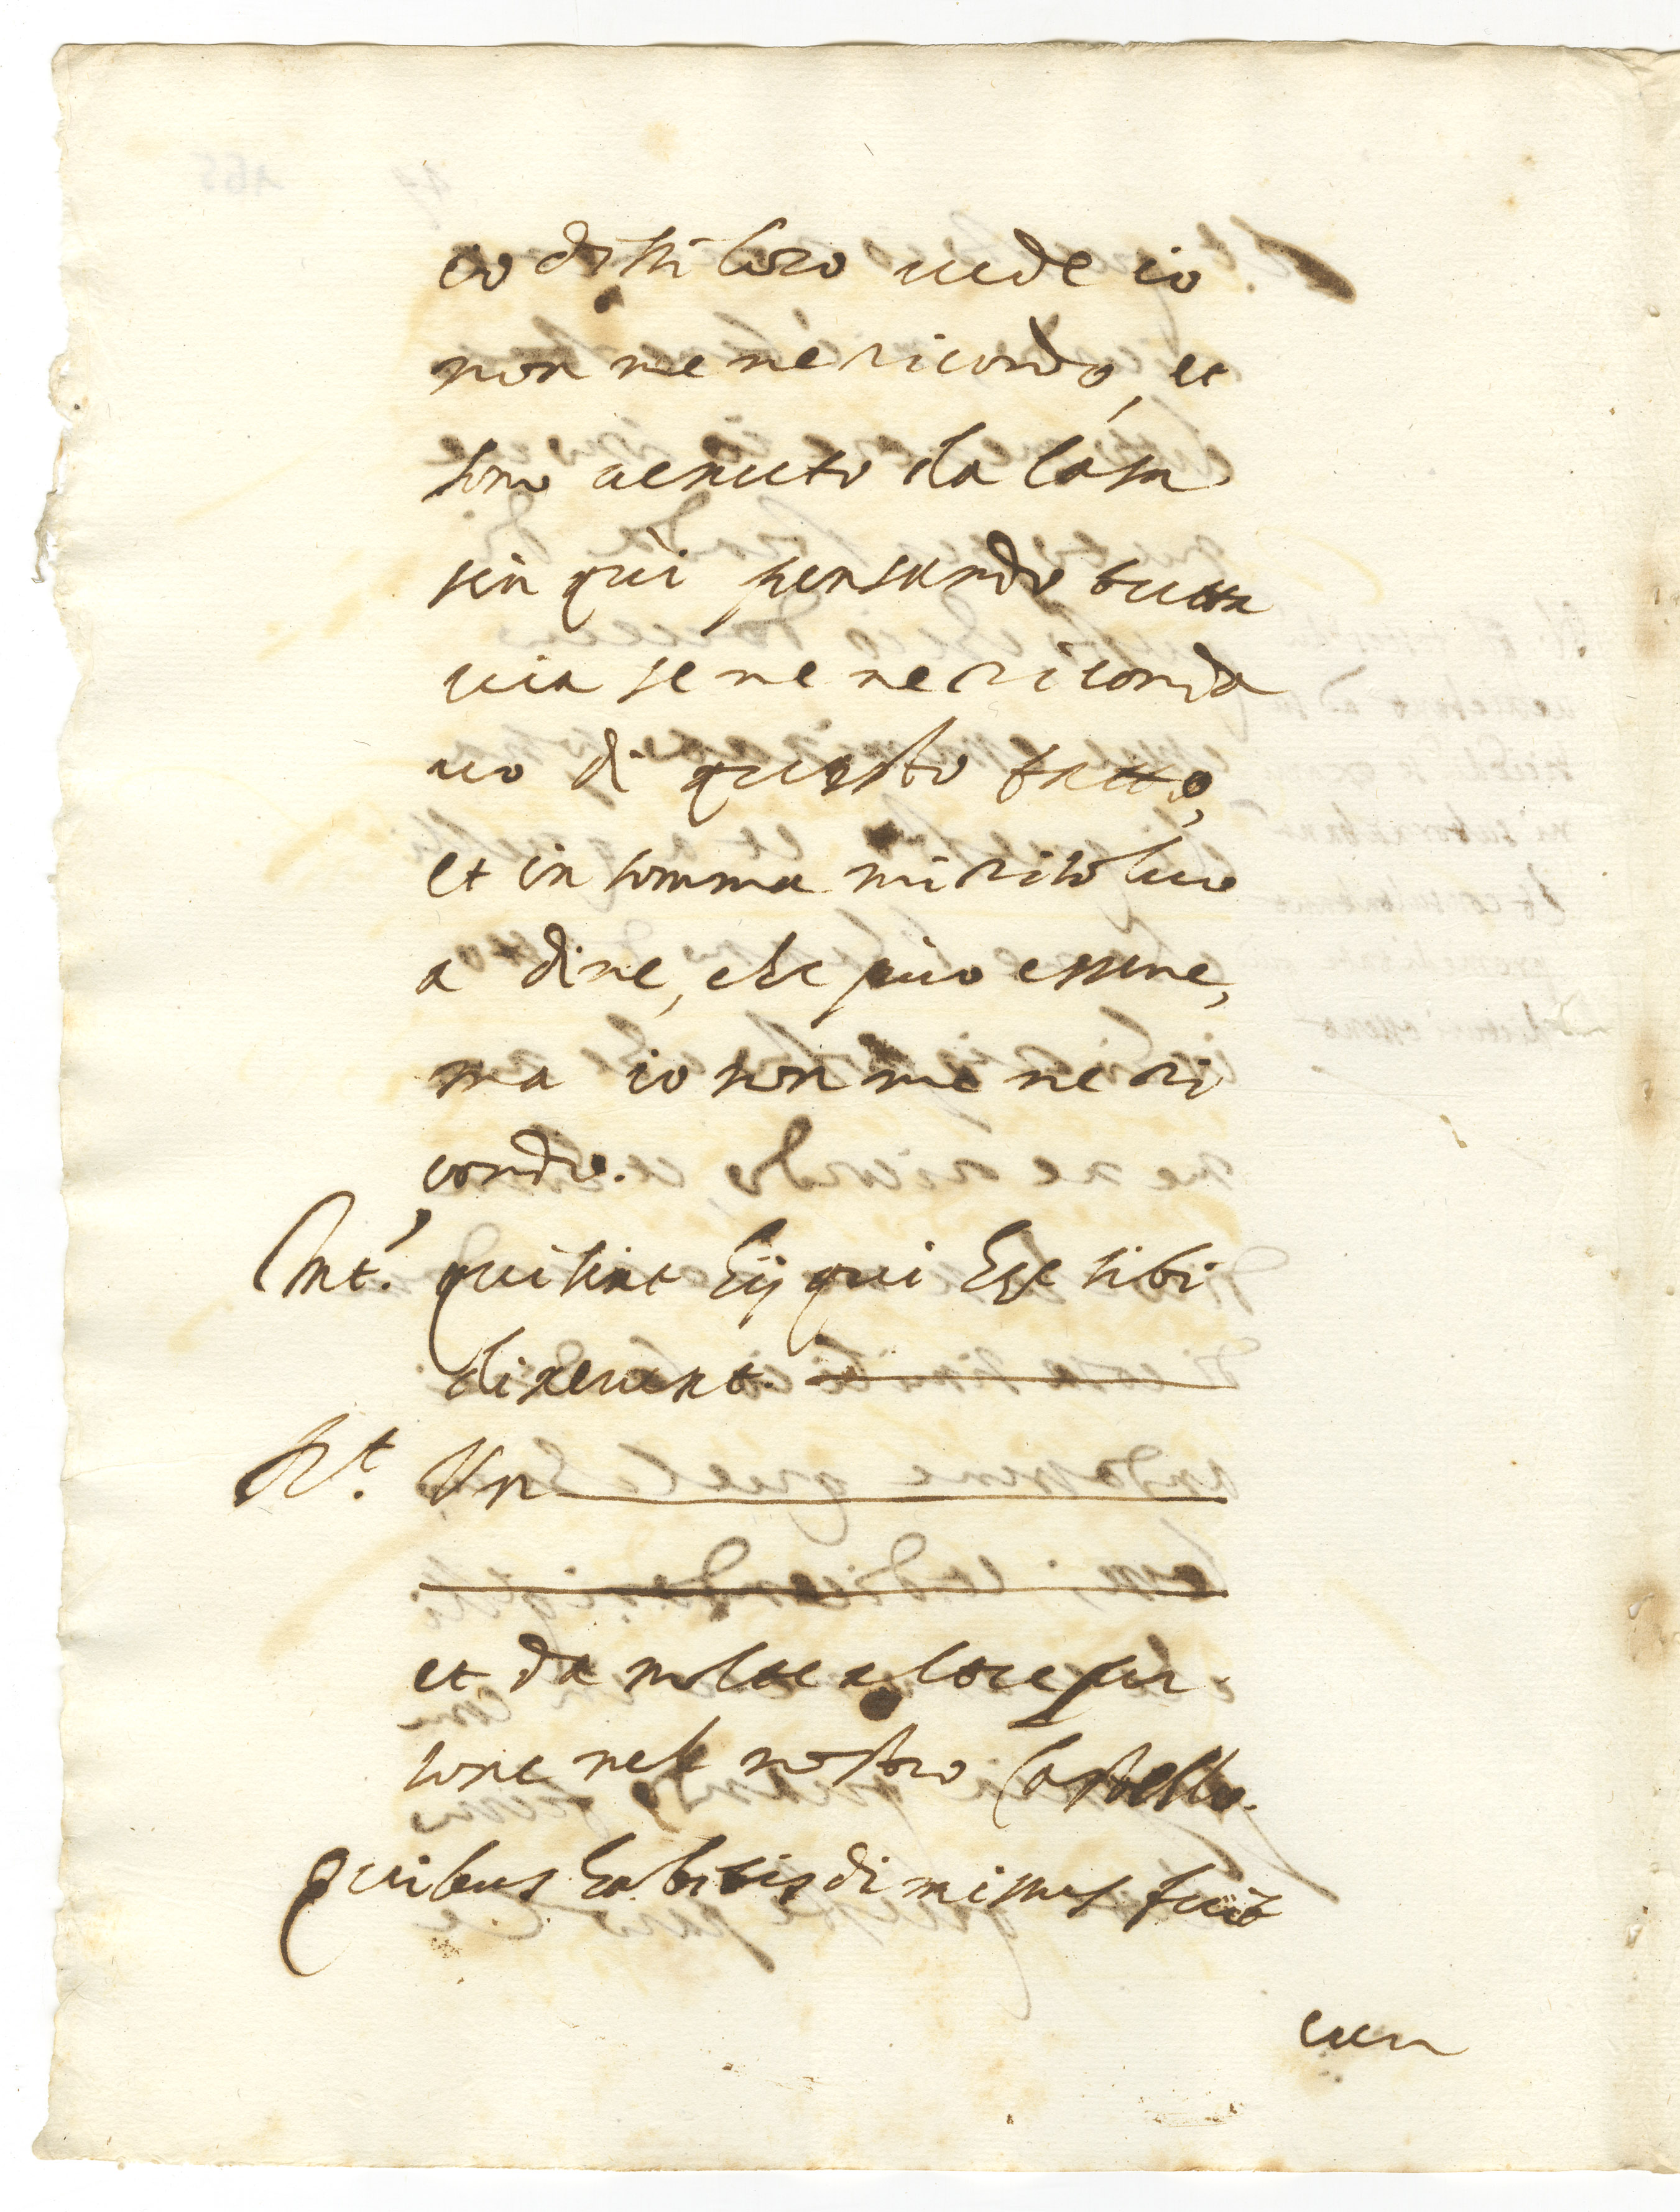 io dissi loro vede io
non me ne ricordo, et
sono venuto da casa
sin qui pensando tutta
via se me ne ricorda
vo di questo fatto,
et in somma mi risolvo
a dire, che può essere,
ma io non me ne ri
cordo.
Int. qui sint hij qui hęc sibi
dixerunt.
Rt. Un
et da molte altre per
sone nel nostro Castello.
Quibus habitis dimissus fuit
cum